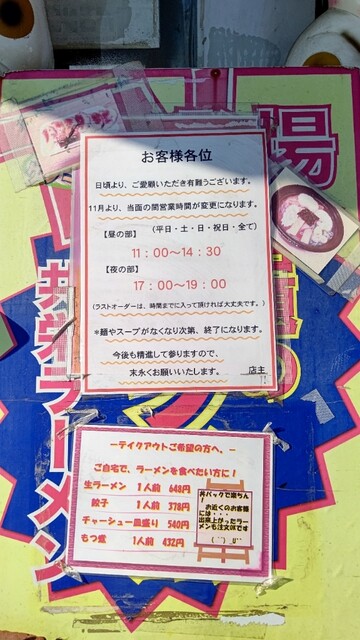 お客様各位
日頃より、ご愛顧いただき有難うございます。
11月より、当面の間営業時間が変更になります。
【昼の部】 (平日・土・日・祝日・全て)
11:00〜14:30
【夜の部】
17:00〜19:00
(ラストオーダーは、時間までに入って頂ければ大丈夫です。)
*麺やスープがなくなり次第、終了になります。
今後も精進して参りますので、
末永くお願いいたします。 店主
ーテイクアウトご希望の方へ、ー
ご自宅で、ラーメンを食べたい方に!
生ラーメン 1人前 648円
餃子 1人前 378円
チャーシュー皿盛り 540円
もつ煮 1人前 432円
丼パックで楽ちん!
お近くのお客様には・・・
出来上がったラーメンも注文休です
場
ラーメン
の